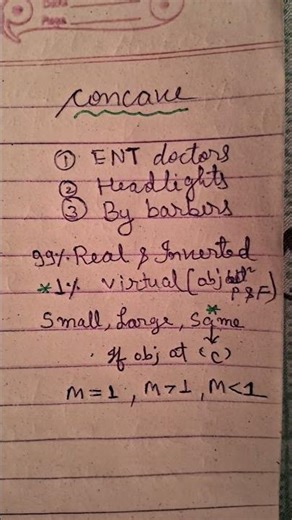 Date
Page
concave
① ENT doctors
② Headlights
③ By barbers
99% Real & Inverted
*1% virtual (obj betⁿ P & F)
Small, Large, Same
*
↓
If obj at (C)
M=1, M>1, M<1